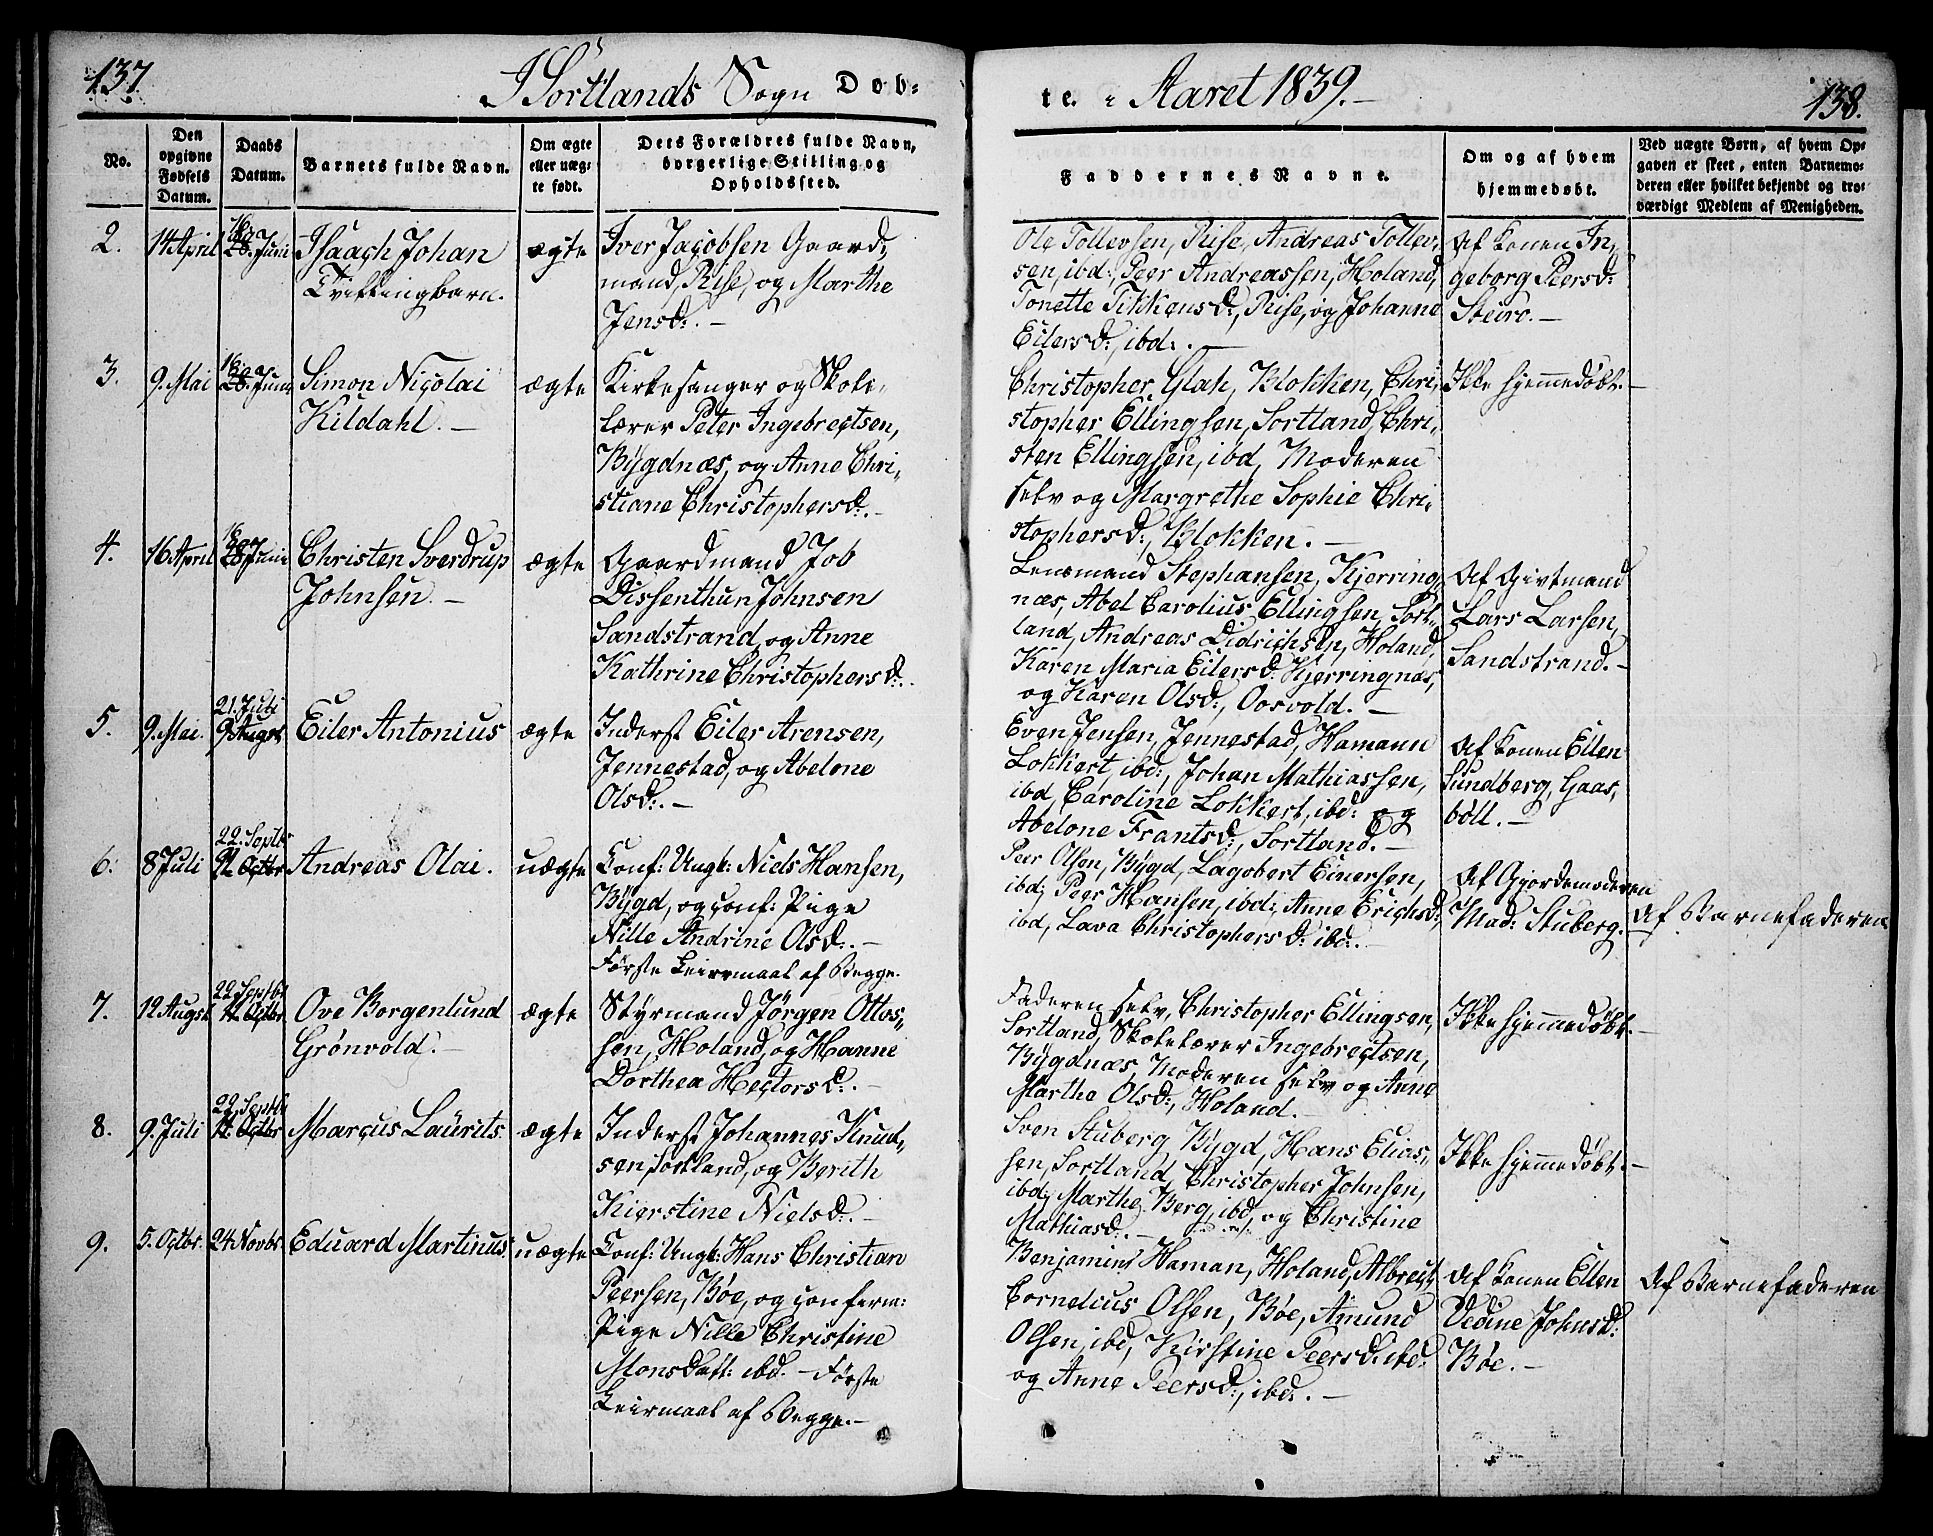 137
I Sortlands Sogn Døb-
No.
Den
opgivne
Fødsels
Datum.
Daabs
Datum.
Barnets fulde Navn.
Om ægte
eller uæg-
te født.
Dets Forældres fulde Navn,
borgerlige Stilling og
Opholdssted.
2. 14 April Juni Isaach Johan ægte Iver Jacobsen Gaard-
Tvillingbarn. mand, Rise, og Marthe
Jensd:. –
3. 9. Mai Juni Simon Nicolai ægte Kirkesanger og Skole-
Kildahl. – lærer Peter Ingebrectsen,
Bygdnæs, og Anne Chri-
stiane Christophersd:. –
4. 16 April Juni Christen Sverdrup ægte Gaardmand Job
Johnsen. – Dissenthun Johnsen
Sandstrand, og Anne
Kathrine Christophersd:.
21. Juli
5. 9. Mai. 9 Augst Eiler Antonius ægte Inderst Eiler Arensen,
Jennestad, og Abelone
Olsd:. –
22. Septbr
6. 8 Juli Octbr Andreas Olai. uægte Conf: Ungk: Niels Hansen,
Bygd, og conf: Pige
Nille Andrine Olsd:. –
Første Leiermaal af Begge.
22 Septbr
7. 12 Augst Octbr Ove Borgenlund ægte Styrmand Jørgen Ottos-
Grønvold. – sen, Holand, og Hanne
Dorthea Hectorsd:. –
22. Septbr
8. 9. Juli Octbr Marcus Laurits. ægte Inderst Johannes Knud-
sen, Sortland, og Berith
Kierstine Nielsd:. –
9. 5. Octbr. 24 Novbr. Eduard Martinus uægte Conf: Ungk: Hans Christian
Peersen, Bøe, og conferm:
Pige Nille Christine
Monsdatt: ibd. – Første
Leiermaal af Begge. –
te. i Aaret 1839. –
138.
Faddernes Navne.
Om og af hvem
hjemmedøbt.
Ved uægte Børn, af hvem Op-
gaven er skeet, enten Barnemo-
deren eller hvilket bekjendt og tro-
værdigt Medlem af Menigheden.
Ole Tollevsen, Rise, Andreas Tollev- Af Konen In-
sen, ibd:, Peer Andreassen, Holand, geborg Peersd:
Tonette Tikkensd:, Rise, og Johanne Steiro. –
Eilersd:, ibd:. –
Christopher Glah, Blokken, Chri- Ikke hjemmedøbt. –
stopher Ellingsen, Sortland, Chri-
sten Ellingsen, ibd, Moderen
selv og Margrethe Sophie Chri-
stophersd:, Blokken. –
Lensmand Stephansen, Kjerring- Af Givtmand
næs, Abel Carolius Ellingsen, Sort- Lars Larsen,
land, Andreas Didrichsen, Holand, Sandstrand. –
Karen Maria Eilersd: Kjerringnæs,
og Karen Olsd:, Oosvold. –
Even Jensen, Jennestad, Hamann Af Konen Ellen
Lokkert, ibd:, Johan Mathiassen, Sundberg, Gaas-
ibd, Caroline Lokkert, ibd: og böll. –
Abelone Frantsd:, Sortland. –
Peer Olsen, Bygd, Lagobert Einersen, Af Gjordemoderen
ibd; Peer Hansen, ibd:, Anne Erichsd:, Mad: Stuberg. Af Barnefaderen
ibd, Lava Christophersd: ibd:. –
Faderen selv, Christopher Ellingsen, Ikke hjemmedøbt. –
Sortland, Skolelærer Ingebrectsen,
Bygdnæs, Moderen selv og Anne
Martha Olsd:, Holand. –
Sven Stuberg, Bygd, Hans Elias- Ikke hjemmedøbt. –
sen, Sortland, Christopher Johnsen,
ibd; Marthe Berg, ibd, og Christine
Mathiasd:. –
Benjamin Haman, Holand, Albrect Af Konen Ellen Af Barnefaderen
Cornelius Olsen, Bøe, Amund Vedine Johnsd:
Olsen, ibd, Kirstine Peersd: ibd: Bøe. –
og Anne Peersd:, ibd:. –